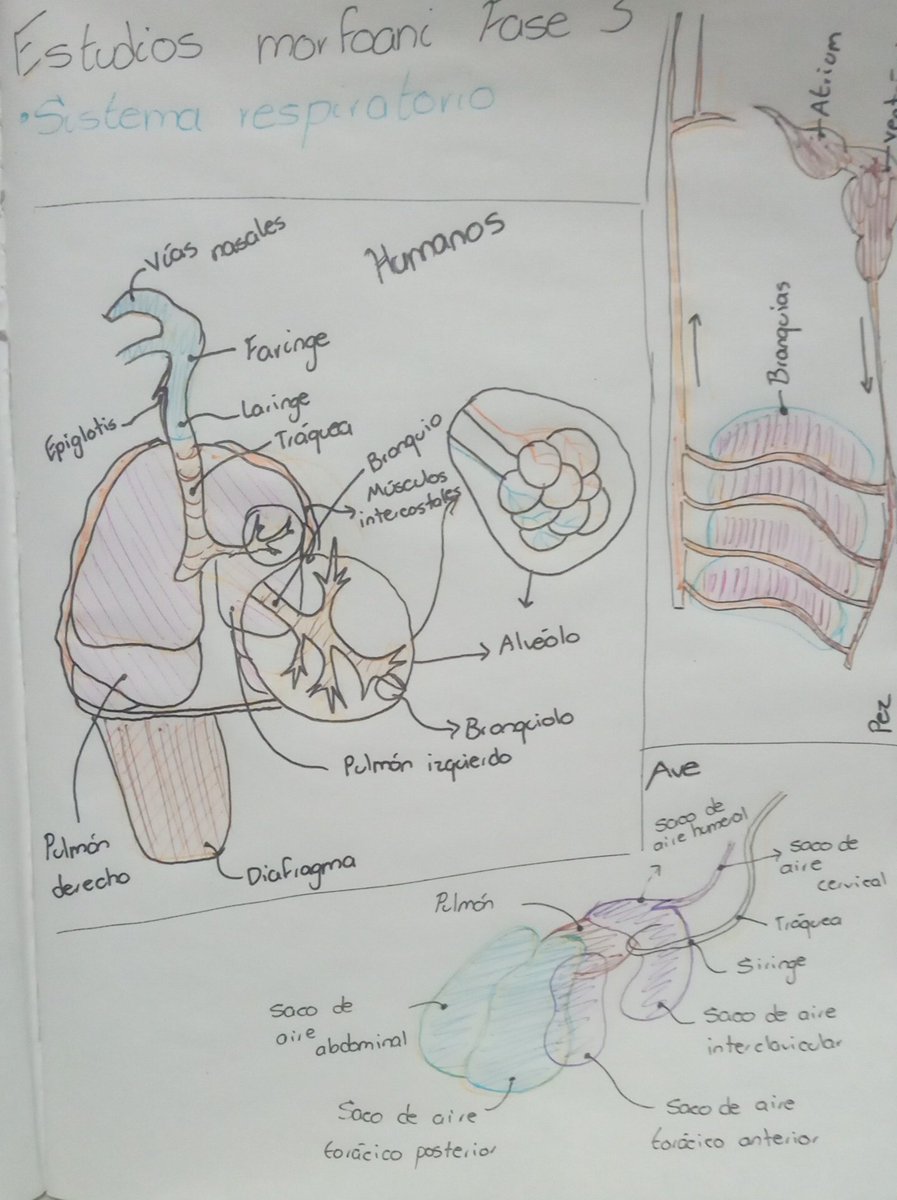 Estudios morfoani Fase 3
•Sistema respiratorio
Humanos
Vías nasales
Faringe
Epiglotis
Laringe
Tráquea
Branquio
Músculos
intercostales
Alvéolo
Branquiolo
Pulmón izquierdo
Pulmón
derecho
Diafragma
Atrium
Branquias
Pez
Ave
Saco de
aire humeral
Saco de
aire
cervical
Pulmón
Tráquea
Siringe
Saco de
aire
abdominal
Saco de aire
interclavicular
Saco de aire
torácico posterior
Saco de aire
torácico anterior